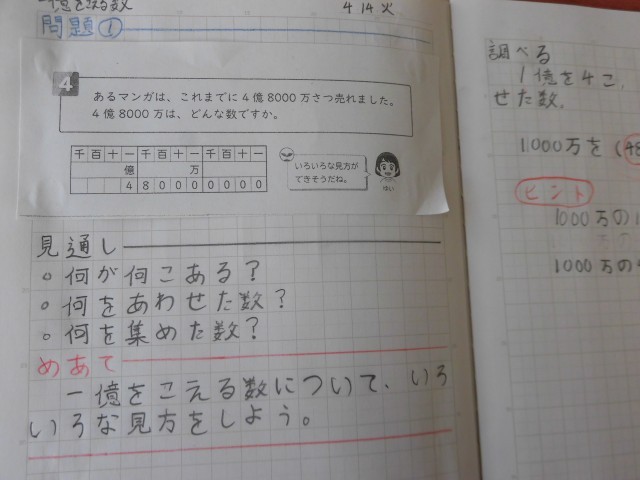 億をこえる数
4 14 火
問題①
4
あるマンガは、これまでに4億8000万さつ売れました。
4億8000万は、どんな数ですか。
千百十一千百十一千百十一
億 万
480000000
いろいろな見方が
できそうだね。
ゆい
見通し
何が何こある?
何をあわせた数?
何を集めた数?
めあて
一億をこえる数について、いろ
いろな見方をしよう。
調べる
1億を4こ、
せた数。
1000万を(48
ヒント
1000万の1
1000万の4